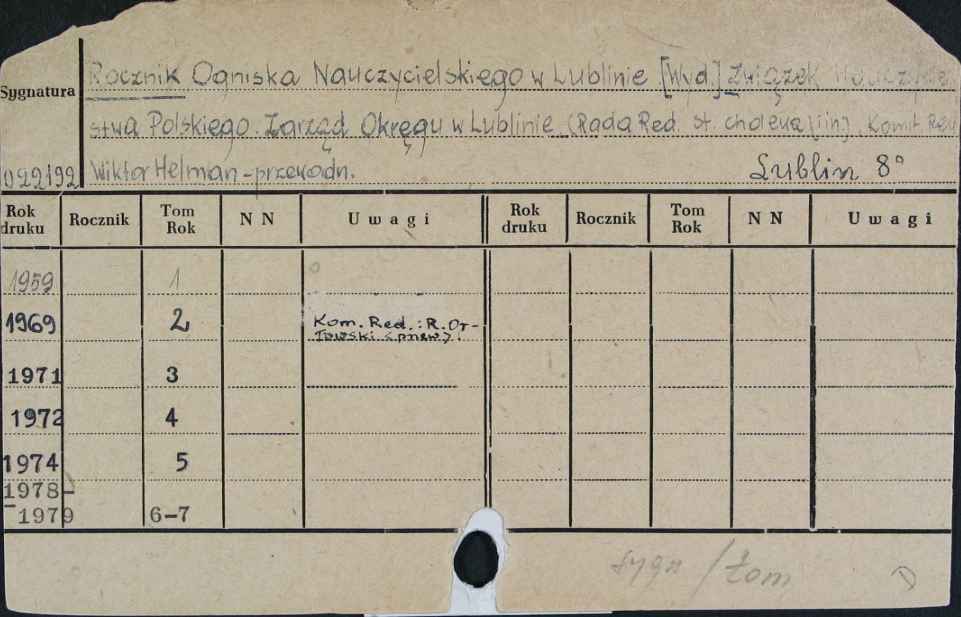 Rocznik Ogniska Nauczycielskiego w Lublinie [Wyd.] Związek Nauczyciel
Sygnatura
stwa Polskiego. Zarząd Okręgu w Lublinie. (Rada Red. st. Cholewa [iin]. Komit Red
022192 Wiktor Helman - przewodn. Lublin 8°
Rok druku Rocznik Tom Rok N N Uwagi Rok druku Rocznik Tom Rok N N Uwagi
1959 1
1969 2 Kom. Red.: R. Or-
łowski (przew).
1971 3
1972 4
1974 5
1978-
1979 6-7
sygn / Tom D